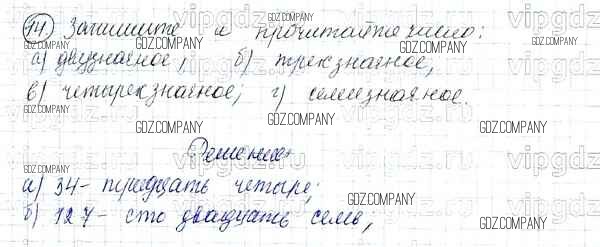 14) Запишите и прочитайте число:
а) двузначное; б) трехзначное,
в) четырехзначное; г) семизначное.
Решение
а) 34 - тридцать четыре;
б) 127 - сто двадцать семь,